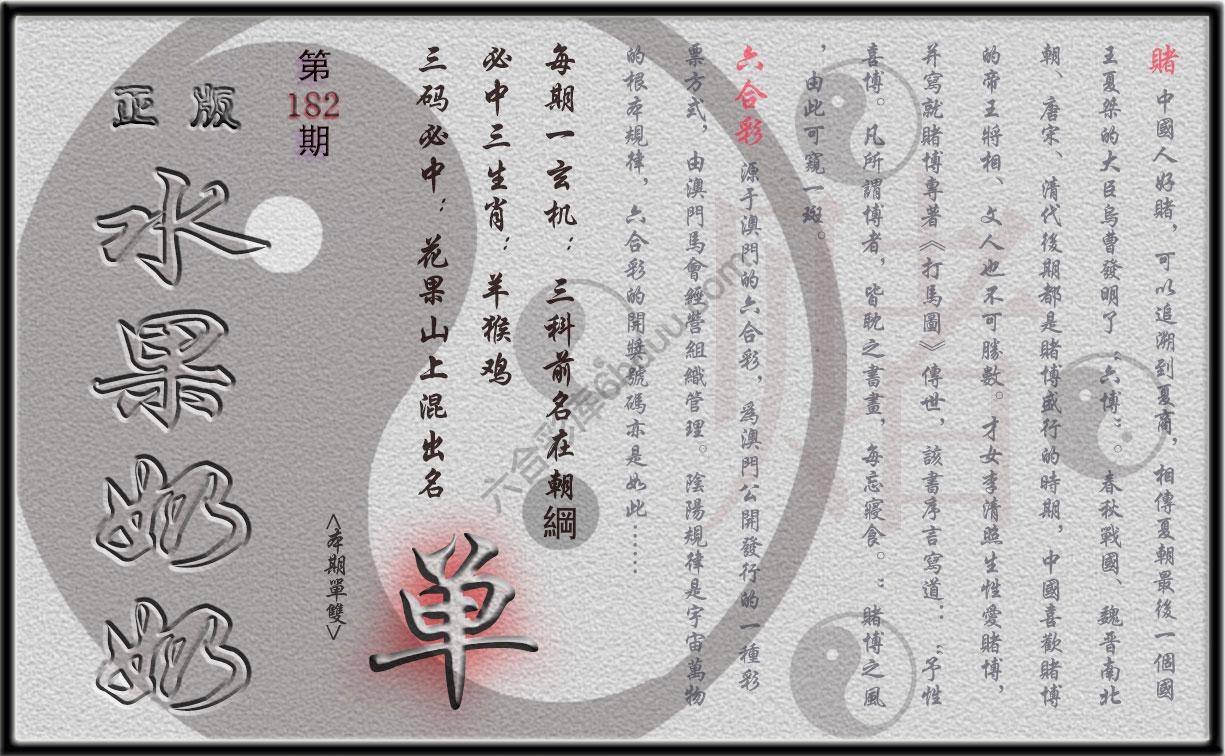 賭 中國人好賭，可以追溯到夏商，相傳夏朝最後一個國
王夏桀的大臣烏曹發明了“六博”。春秋戰國、魏晋南北
朝、唐宋、清代後期都是賭博盛行的時期，中國喜歡賭博
的帝王將相、文人也不可勝數。才女李清照生性愛賭博，
并寫就賭博專著《打馬圖》傳世，該書序言寫道：“予性
喜博。凡所謂博者，皆耽之書畫，每忘寢食。”賭博之風
，由此可窺一斑。
六合彩 源于澳門的六合彩，爲澳門公開發行的一種彩
票方式，由澳門馬會經營組織管理。陰陽規律是宇宙萬物
的根本規律，六合彩的開獎號碼亦是如此……
每期一玄机：三科前名在朝綱
必中三生肖：羊猴鸡
三码必中：花果山上混出名
单
<本期單雙>
第
182
期
正版
水果奶奶
六合彩库6hduu.com
賭